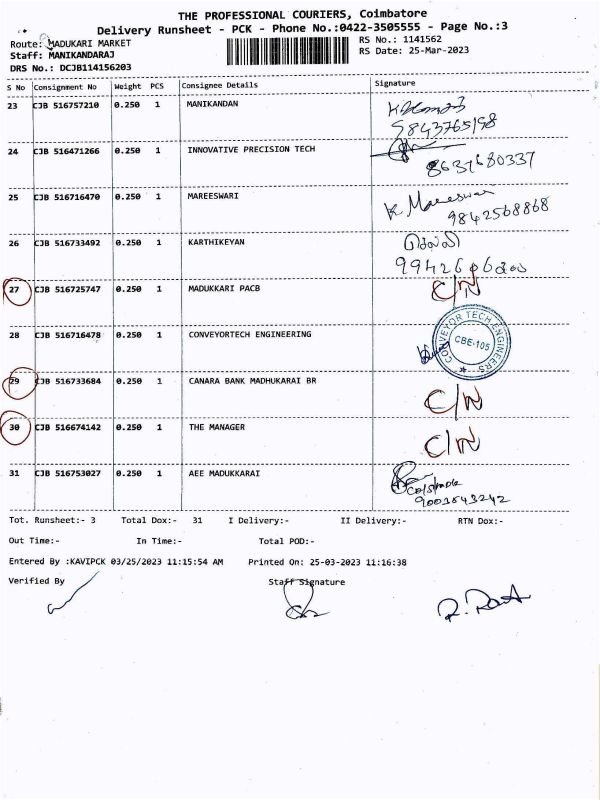 THE PROFESSIONAL COURIERS, Coimbatore
Delivery Runsheet - PCK - Phone No.:0422-3505555 - Page No.:3
Route: MADUKARI MARKET
RS No.: 1141562
Staff: MANIKANDARAJ
RS Date: 25-Mar-2023
DRS No.: DCJB114156203
S No Consignment No Weight PCS Consignee Details Signature
23 CJB 516757210 0.250 1 MANIKANDAN
9843765198
24 CJB 516471266 0.250 1 INNOVATIVE PRECISION TECH
8637680337
25 CJB 516716470 0.250 1 MAREESWARI K. Mareeswari
9842568868
26 CJB 516733492 0.250 1 KARTHIKEYAN
27 CJB 516725747 0.250 1 MADUKKARI PACB C/N
28 CJB 516716478 0.250 1 CONVEYORTECH ENGINEERING
CONVEYOR TECH ENGINEERS
CBE-105
29 CJB 516733684 0.250 1 CANARA BANK MADHUKARAI BR C/N
30 CJB 516674142 0.250 1 THE MANAGER C/N
31 CJB 516753027 0.250 1 AEE MADUKKARAI
9003543242
Tot. Runsheet:- 3 Total Dox:- 31 I Delivery:- II Delivery:- RTN Dox:-
Out Time:- In Time:- Total POD:-
Entered By :KAVIPCK 03/25/2023 11:15:54 AM Printed On: 25-03-2023 11:16:38
Verified By Staff Signature